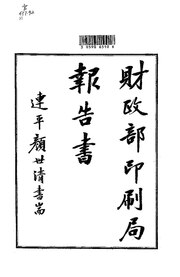 財政部印刷局
報告書
連平顏世清書耑